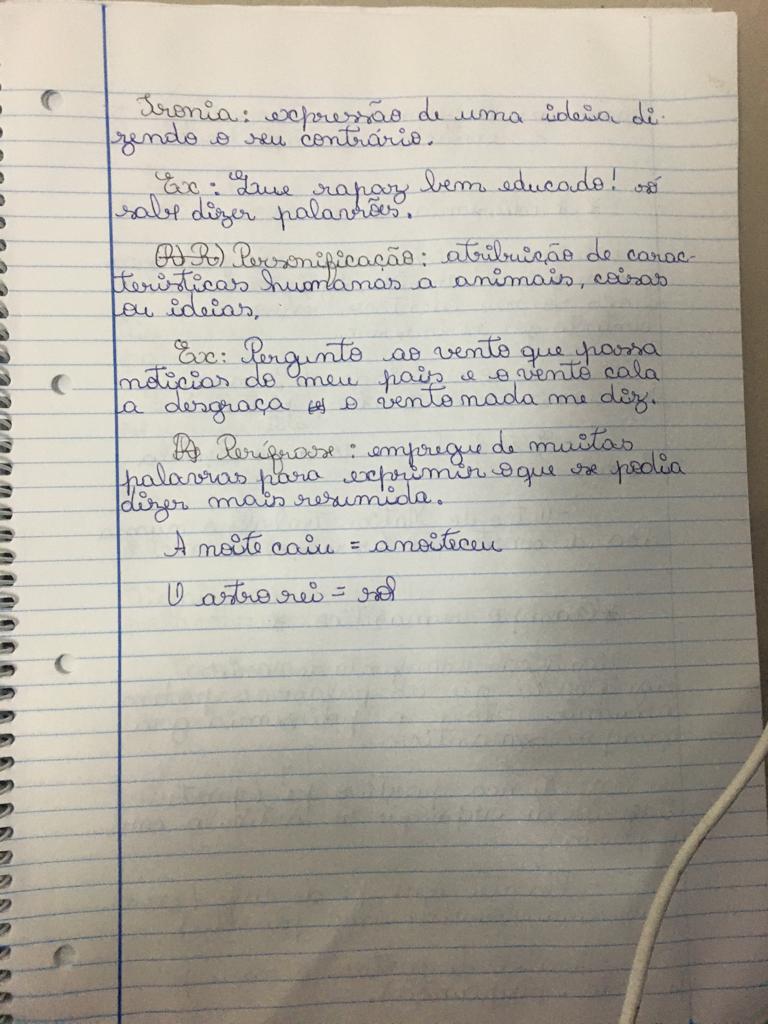 Ironia: expressão de uma ideia di-
zendo o seu contrário.
Ex: Que rapaz bem educado! só
sabe dizer palavrões.
R) Personificação: atribuição de carac-
teristicas humanas a animais, coisas
ou ideias.
Ex: Pergunto ao vento que passa
noticias do meu pais e o vento cala
a desgraça o vento nada me diz.
Perífrase: empregue de muitas
palavras para exprimir o que se podia
dizer mais resumida.
A noite caiu = anoiteceu
O astro rei = sol